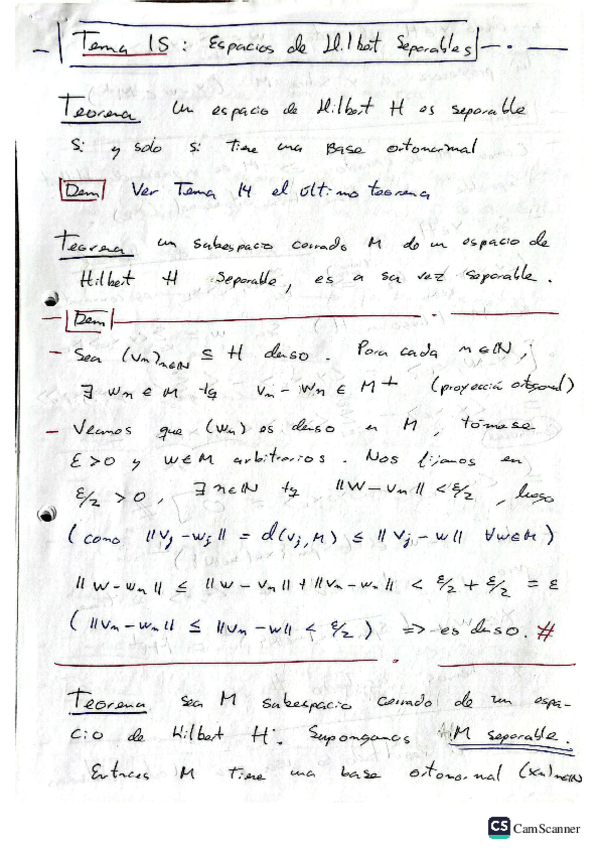 Tema 15: Espacios de Hilbert Separables
Teorema Un espacio de Hilbert H es separable
si y solo si tiene una Base ortonormal
Dem Ver Tema 14 el último teorema
Teorema un subespacio cerrado M de un espacio de
Hilbert H separable, es a su vez separable.
Dem
- Sea (vn)n∈ℕ ⊆ H denso. Para cada n∈ℕ,
∃ wn ∈ M tq vn - wn ∈ M⊥ (proyección ortogonal)
- Veamos que (wn) es denso en M, tómase
ε>0 y w∈M arbitrarios. Nos fijamos en
ε/2 > 0, ∃ n∈ℕ tq ||w-vn|| < ε/2, luego
(como ||vj - wj|| = d(vj, M) ≤ ||vj - w|| ∀w∈M)
||w-wn|| ≤ ||w-vn|| + ||vn-wn|| < ε/2 + ε/2 = ε
(||vn-wn|| ≤ ||vn-w|| < ε/2) => es denso. #
Teorema sea M subespacio cerrado de un espa-
cio de Hilbert H. Supongamos M separable.
Entnces M tiene una base ortonormal (xn)n∈ℕ
CS CamScanner